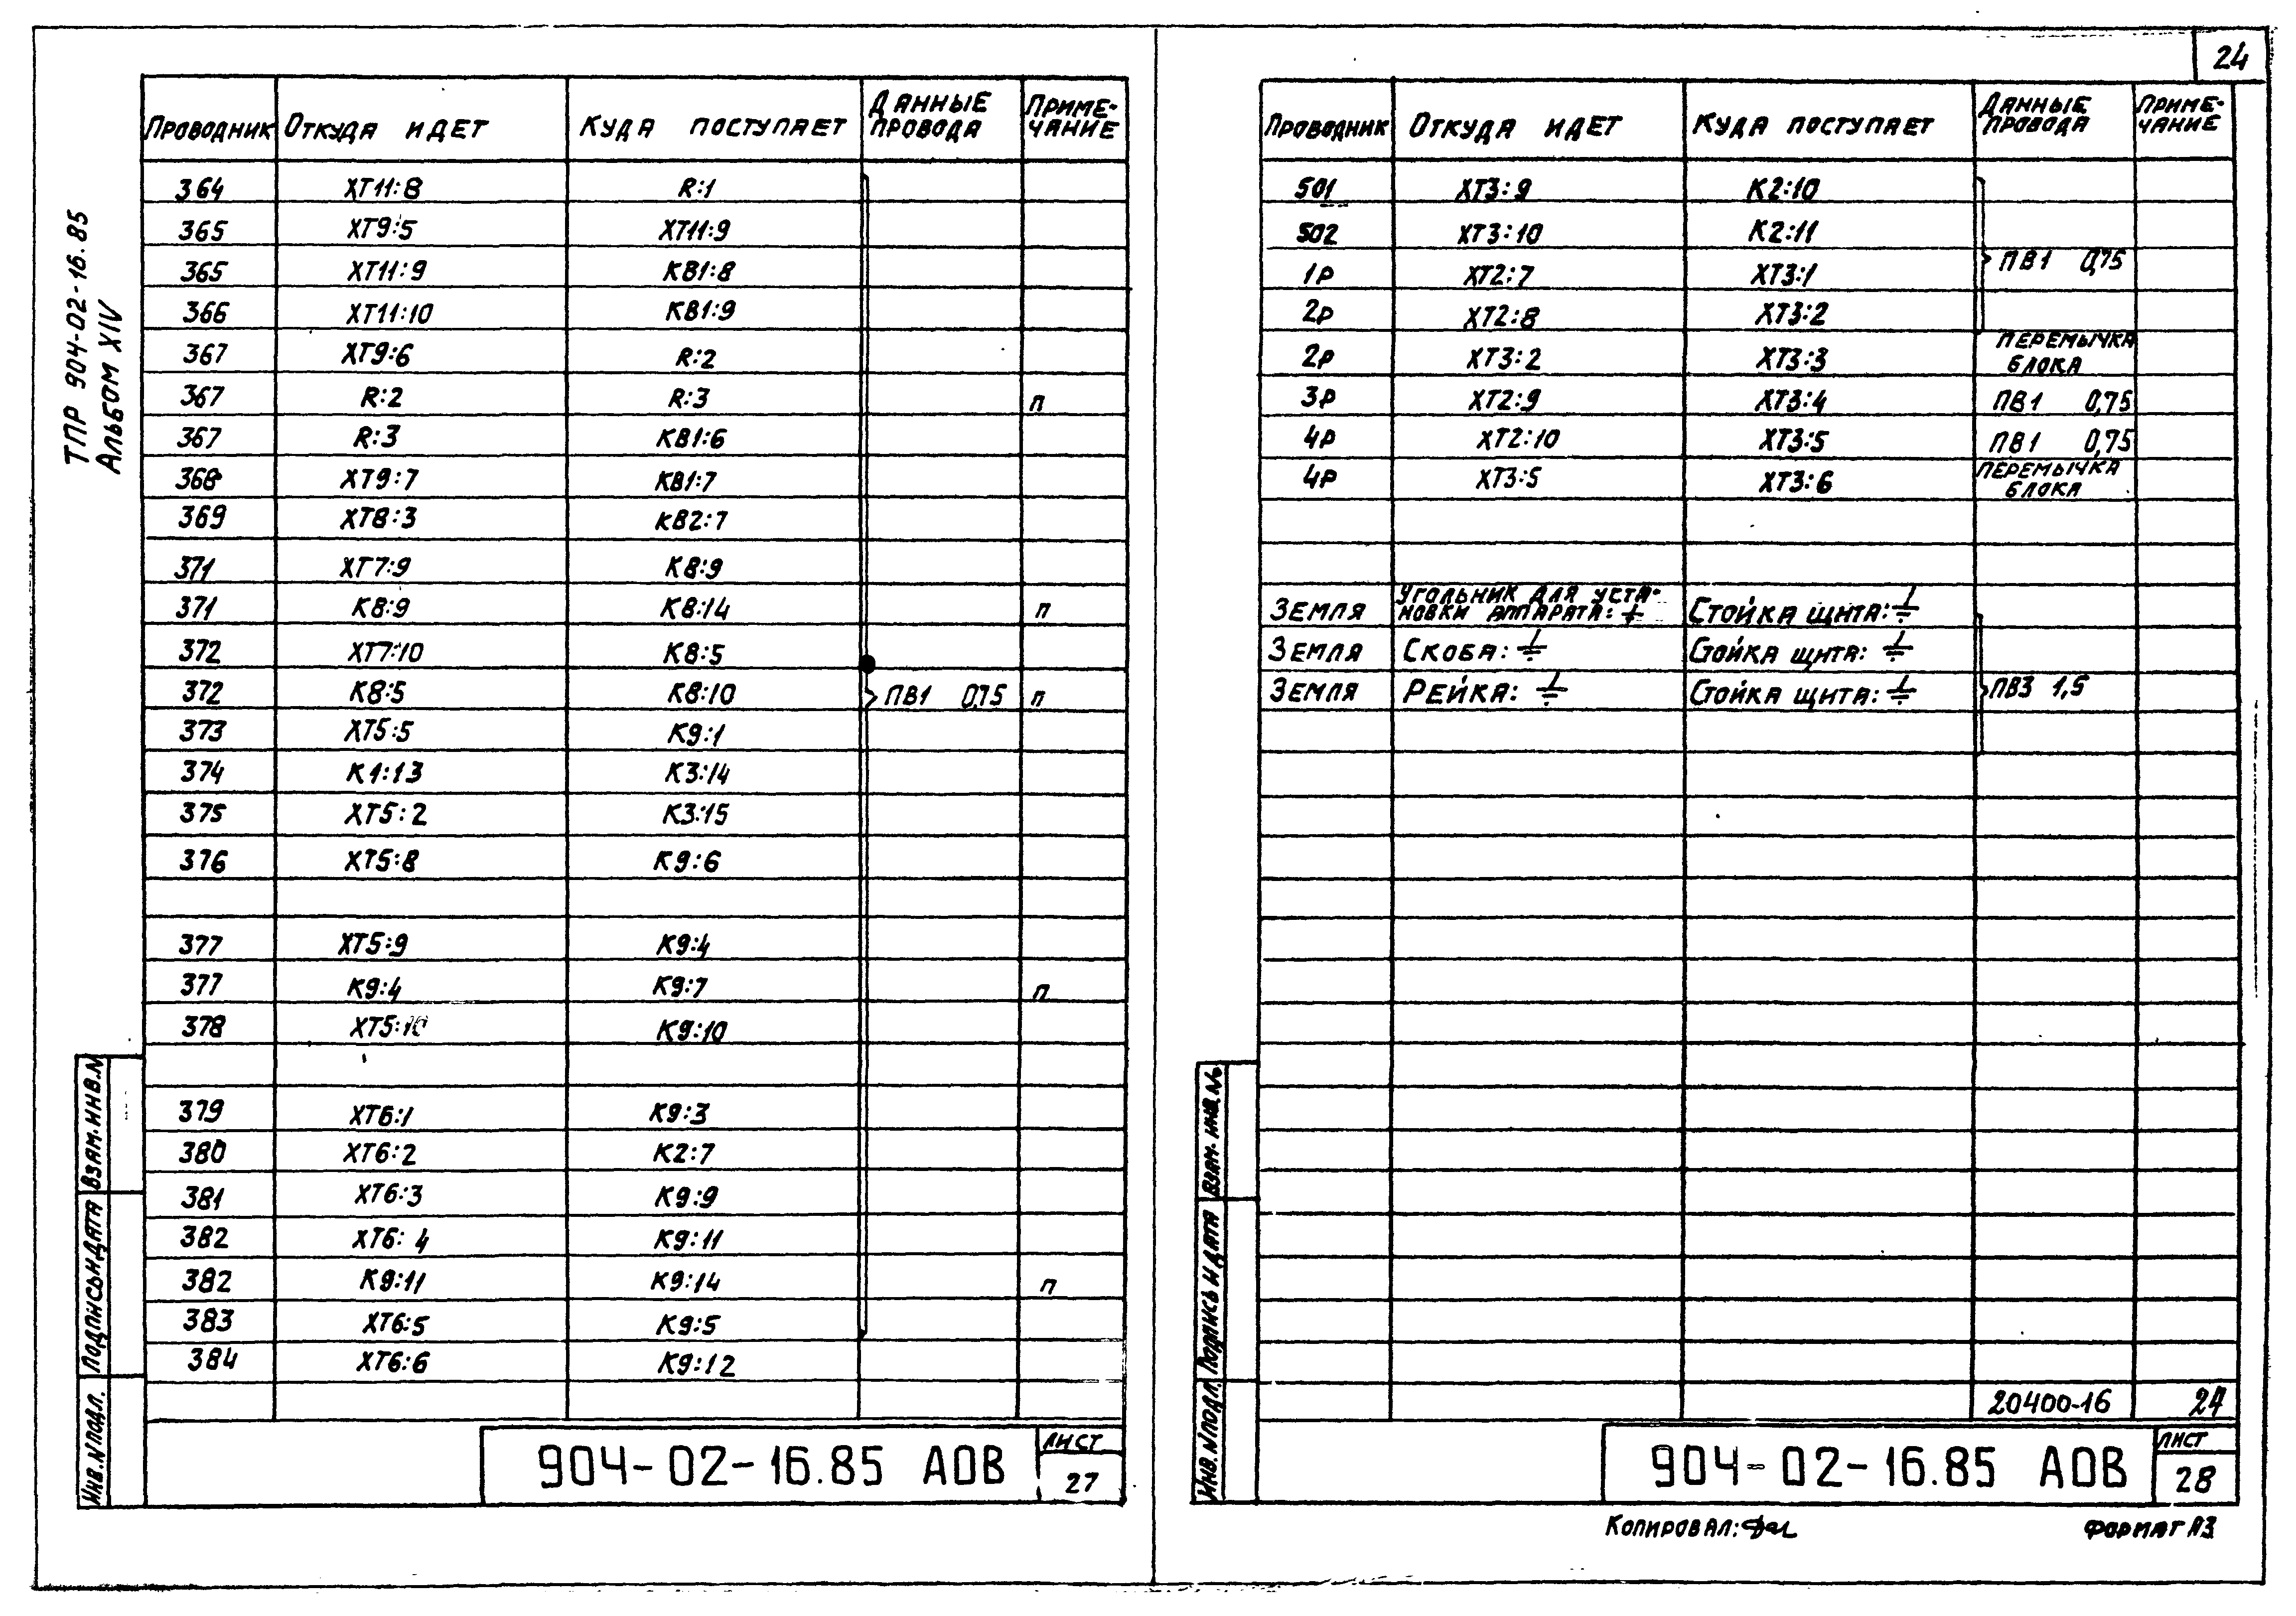 24
ТПР 904-02-16.85
Альбом XIV
Проводник Откуда идет Куда поступает Данные провода Приме-чание
364 ХТ11:8 R:1
365 ХТ9:5 ХТ11:9
365 ХТ11:9 КВ1:8
366 ХТ11:10 КВ1:9
367 ХТ9:6 R:2
367 R:2 R:3 п
367 R:3 КВ1:6
368 ХТ9:7 КВ1:7
369 ХТ8:3 КВ2:7
371 ХТ7:9 К8:9
371 К8:9 К8:14 п
372 ХТ7:10 К8:5
372 К8:5 К8:10 ПВ1 0,75 п
373 ХТ5:5 К9:1
374 К1:13 К3:14
375 ХТ5:2 К3:15
376 ХТ5:8 К9:6
377 ХТ5:9 К9:4
377 К9:4 К9:7 п
378 ХТ5:10 К9:10
379 ХТ6:1 К9:3
380 ХТ6:2 К2:7
381 ХТ6:3 К9:9
382 ХТ6:4 К9:11
382 К9:11 К9:14 п
383 ХТ6:5 К9:5
384 ХТ6:6 К9:12
Взам.инв.N
Подпись и дата
Инв.N подл.
904-02-16.85 АОВ
Лист
27
Проводник Откуда идет Куда поступает Данные провода Приме-чание
501 ХТ3:9 К2:10
502 ХТ3:10 К2:11
1Р ХТ2:7 ХТ3:1 ПВ1 0,75
2Р ХТ2:8 ХТ3:2
2Р ХТ3:2 ХТ3:3 Перемычка блока
3Р ХТ2:9 ХТ3:4 ПВ1 0,75
4Р ХТ2:10 ХТ3:5 ПВ1 0,75
4Р ХТ3:5 ХТ3:6 Перемычка блока
Земля Угольник для уста-новки аппарата:⏚ Стойка щита:⏚
Земля Скоба:⏚ Стойка щита:⏚
Земля Рейка:⏚ Стойка щита:⏚ ПВ3 1,5
20400-16 24
Взам. инв. N
Подпись и дата
Инв.N подл.
904-02-16.85 АОВ
Лист
28
Копировал:
Формат А3